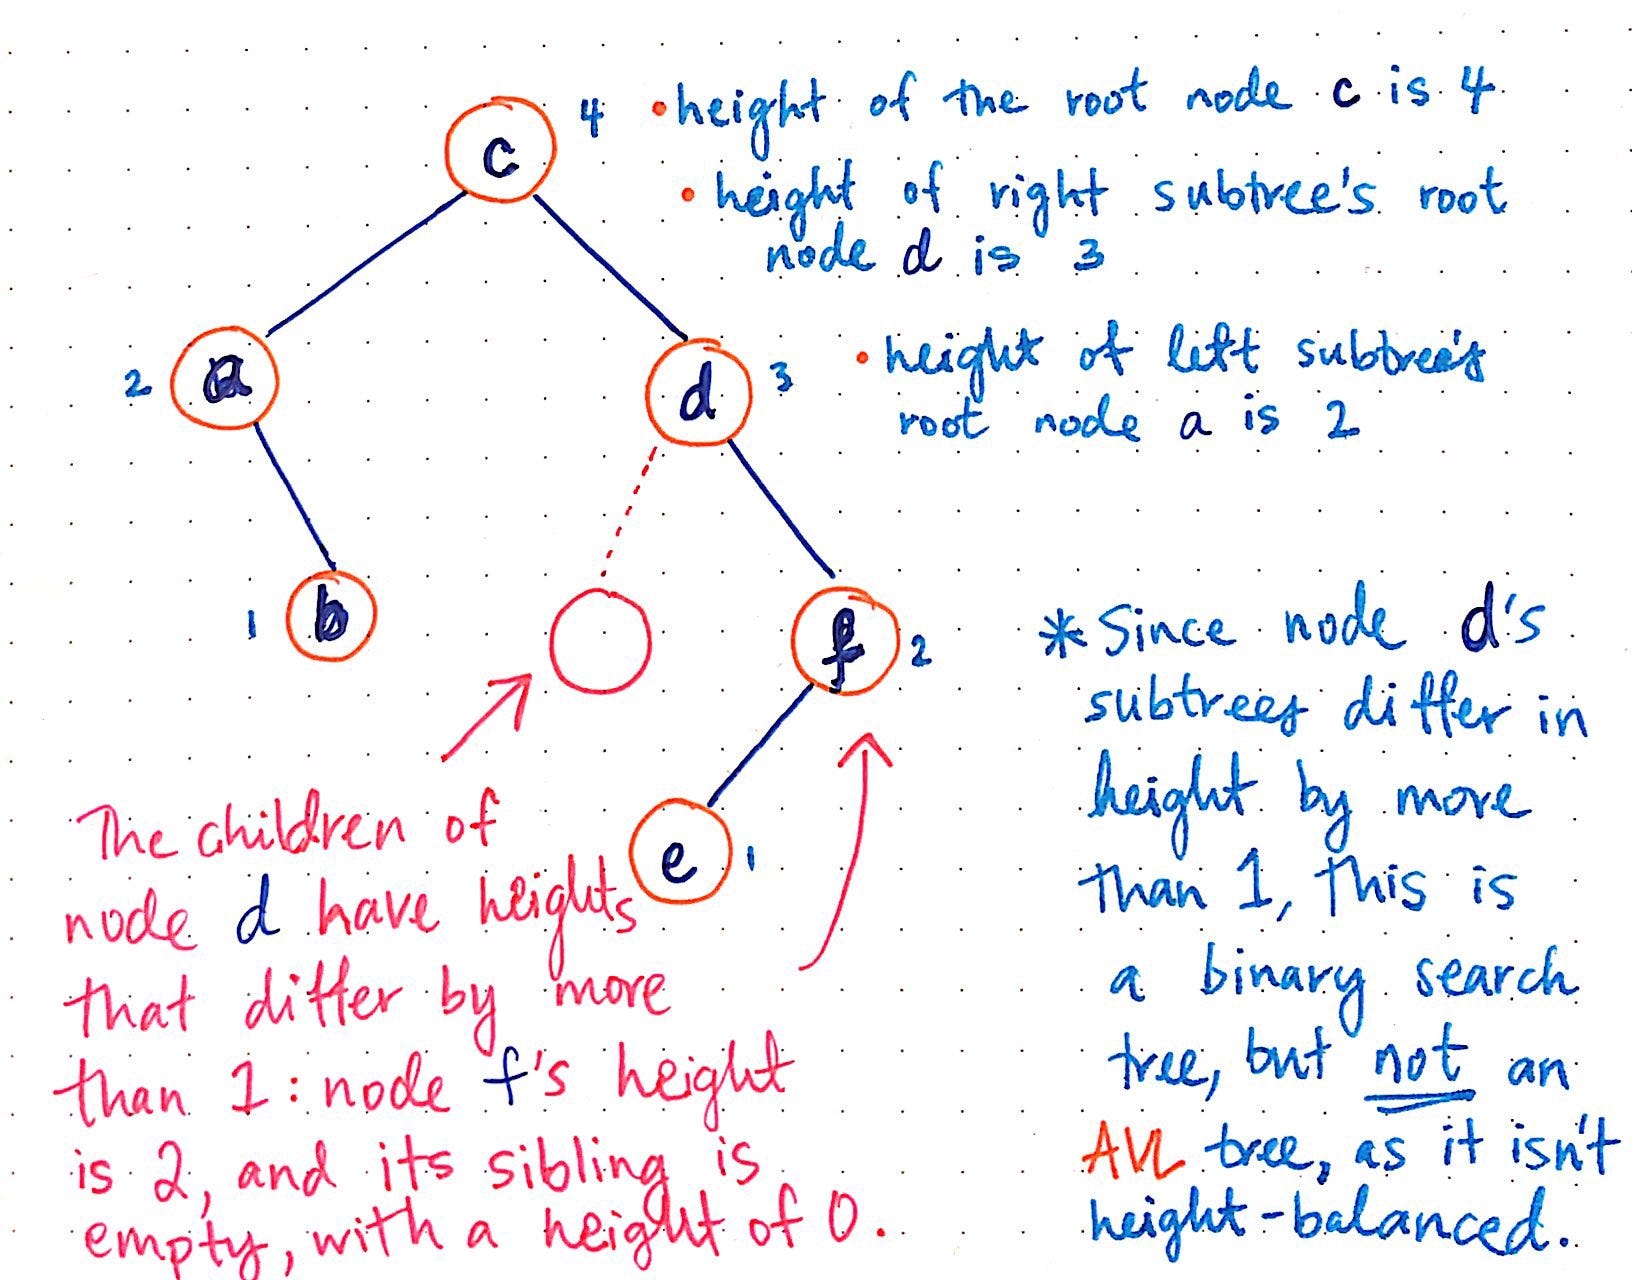 c
4
• height of the root node c is 4
• height of right subtree's root
node d is 3
a
2
d
3
• height of left subtree's
root node a is 2
b
1
f
2
e
1
The children of
node d have heights
that differ by more
than 1: node f's height
is 2, and its sibling is
empty, with a height of 0.
* Since node d's
subtrees differ in
height by more
than 1, this is
a binary search
tree, but not an
AVL tree, as it isn't
height-balanced.